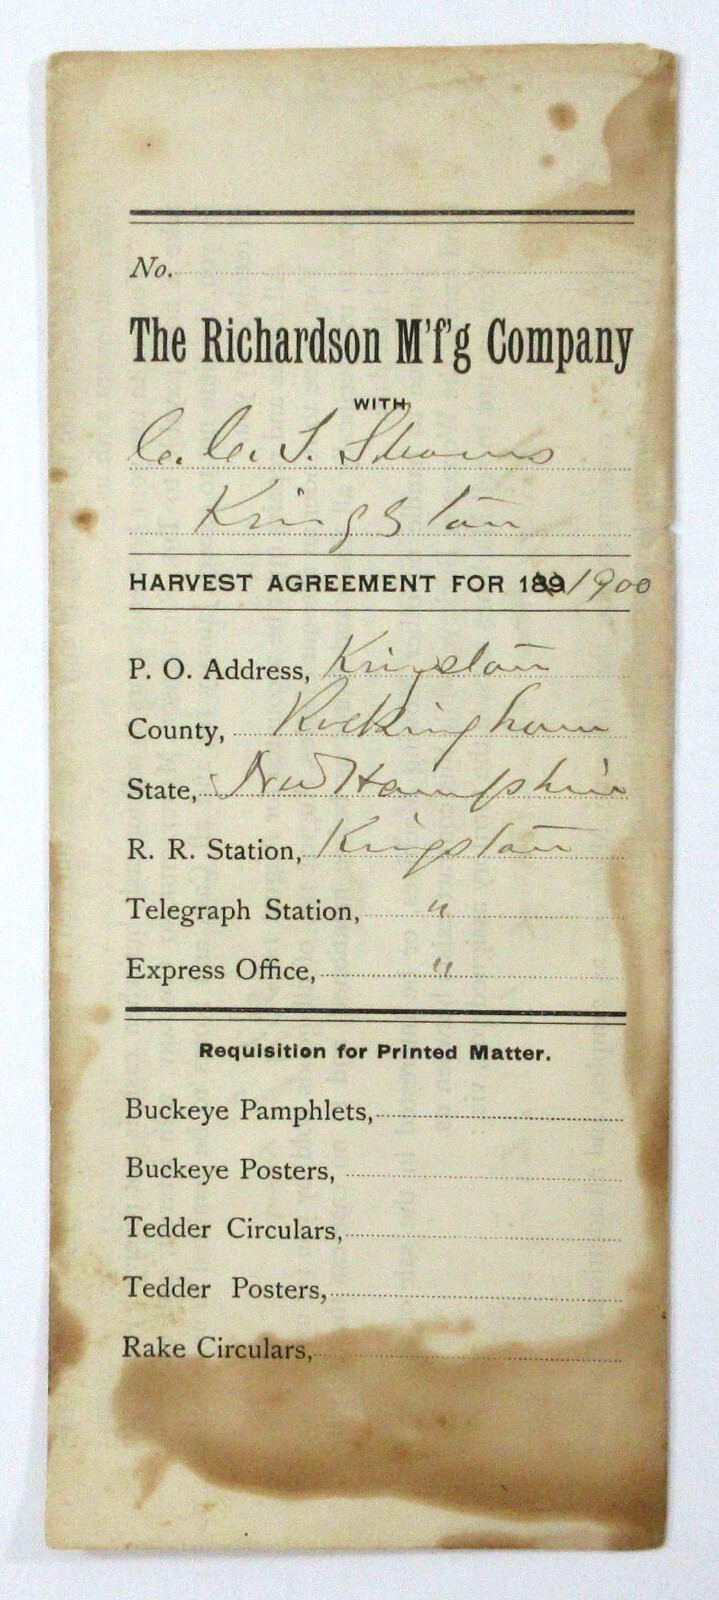 No.
The Richardson M'f'g Company
WITH
C. C. S. Stearns
Kingston
HARVEST AGREEMENT FOR 189 1900
P. O. Address, Kingston
County, Rockingham
State, New Hampshire
R. R. Station, Kingston
Telegraph Station, "
Express Office, "
Requisition for Printed Matter.
Buckeye Pamphlets,
Buckeye Posters,
Tedder Circulars,
Tedder Posters,
Rake Circulars,